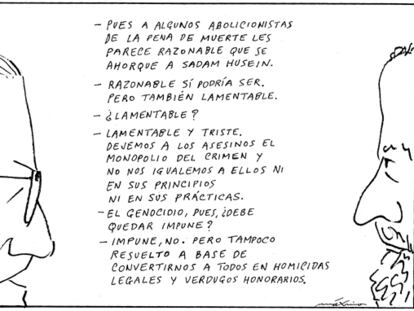 - PUES A ALGUNOS ABOLICIONISTAS
DE LA PENA DE MUERTE LES
PARECE RAZONABLE QUE SE
AHORQUE A SADAM HUSEIN.
- RAZONABLE SÍ PODRÍA SER.
PERO TAMBIÉN LAMENTABLE.
- ¿LAMENTABLE?
- LAMENTABLE Y TRISTE.
DEJEMOS A LOS ASESINOS EL
MONOPOLIO DEL CRIMEN Y
NO NOS IGUALEMOS A ELLOS NI
EN SUS PRINCIPIOS
NI EN SUS PRÁCTICAS.
- EL GENOCIDIO, PUES, ¿DEBE
QUEDAR IMPUNE?
- IMPUNE, NO. PERO TAMPOCO
RESUELTO A BASE DE
CONVERTIRNOS A TODOS EN HOMICIDAS
LEGALES Y VERDUGOS HONORARIOS.
máximo